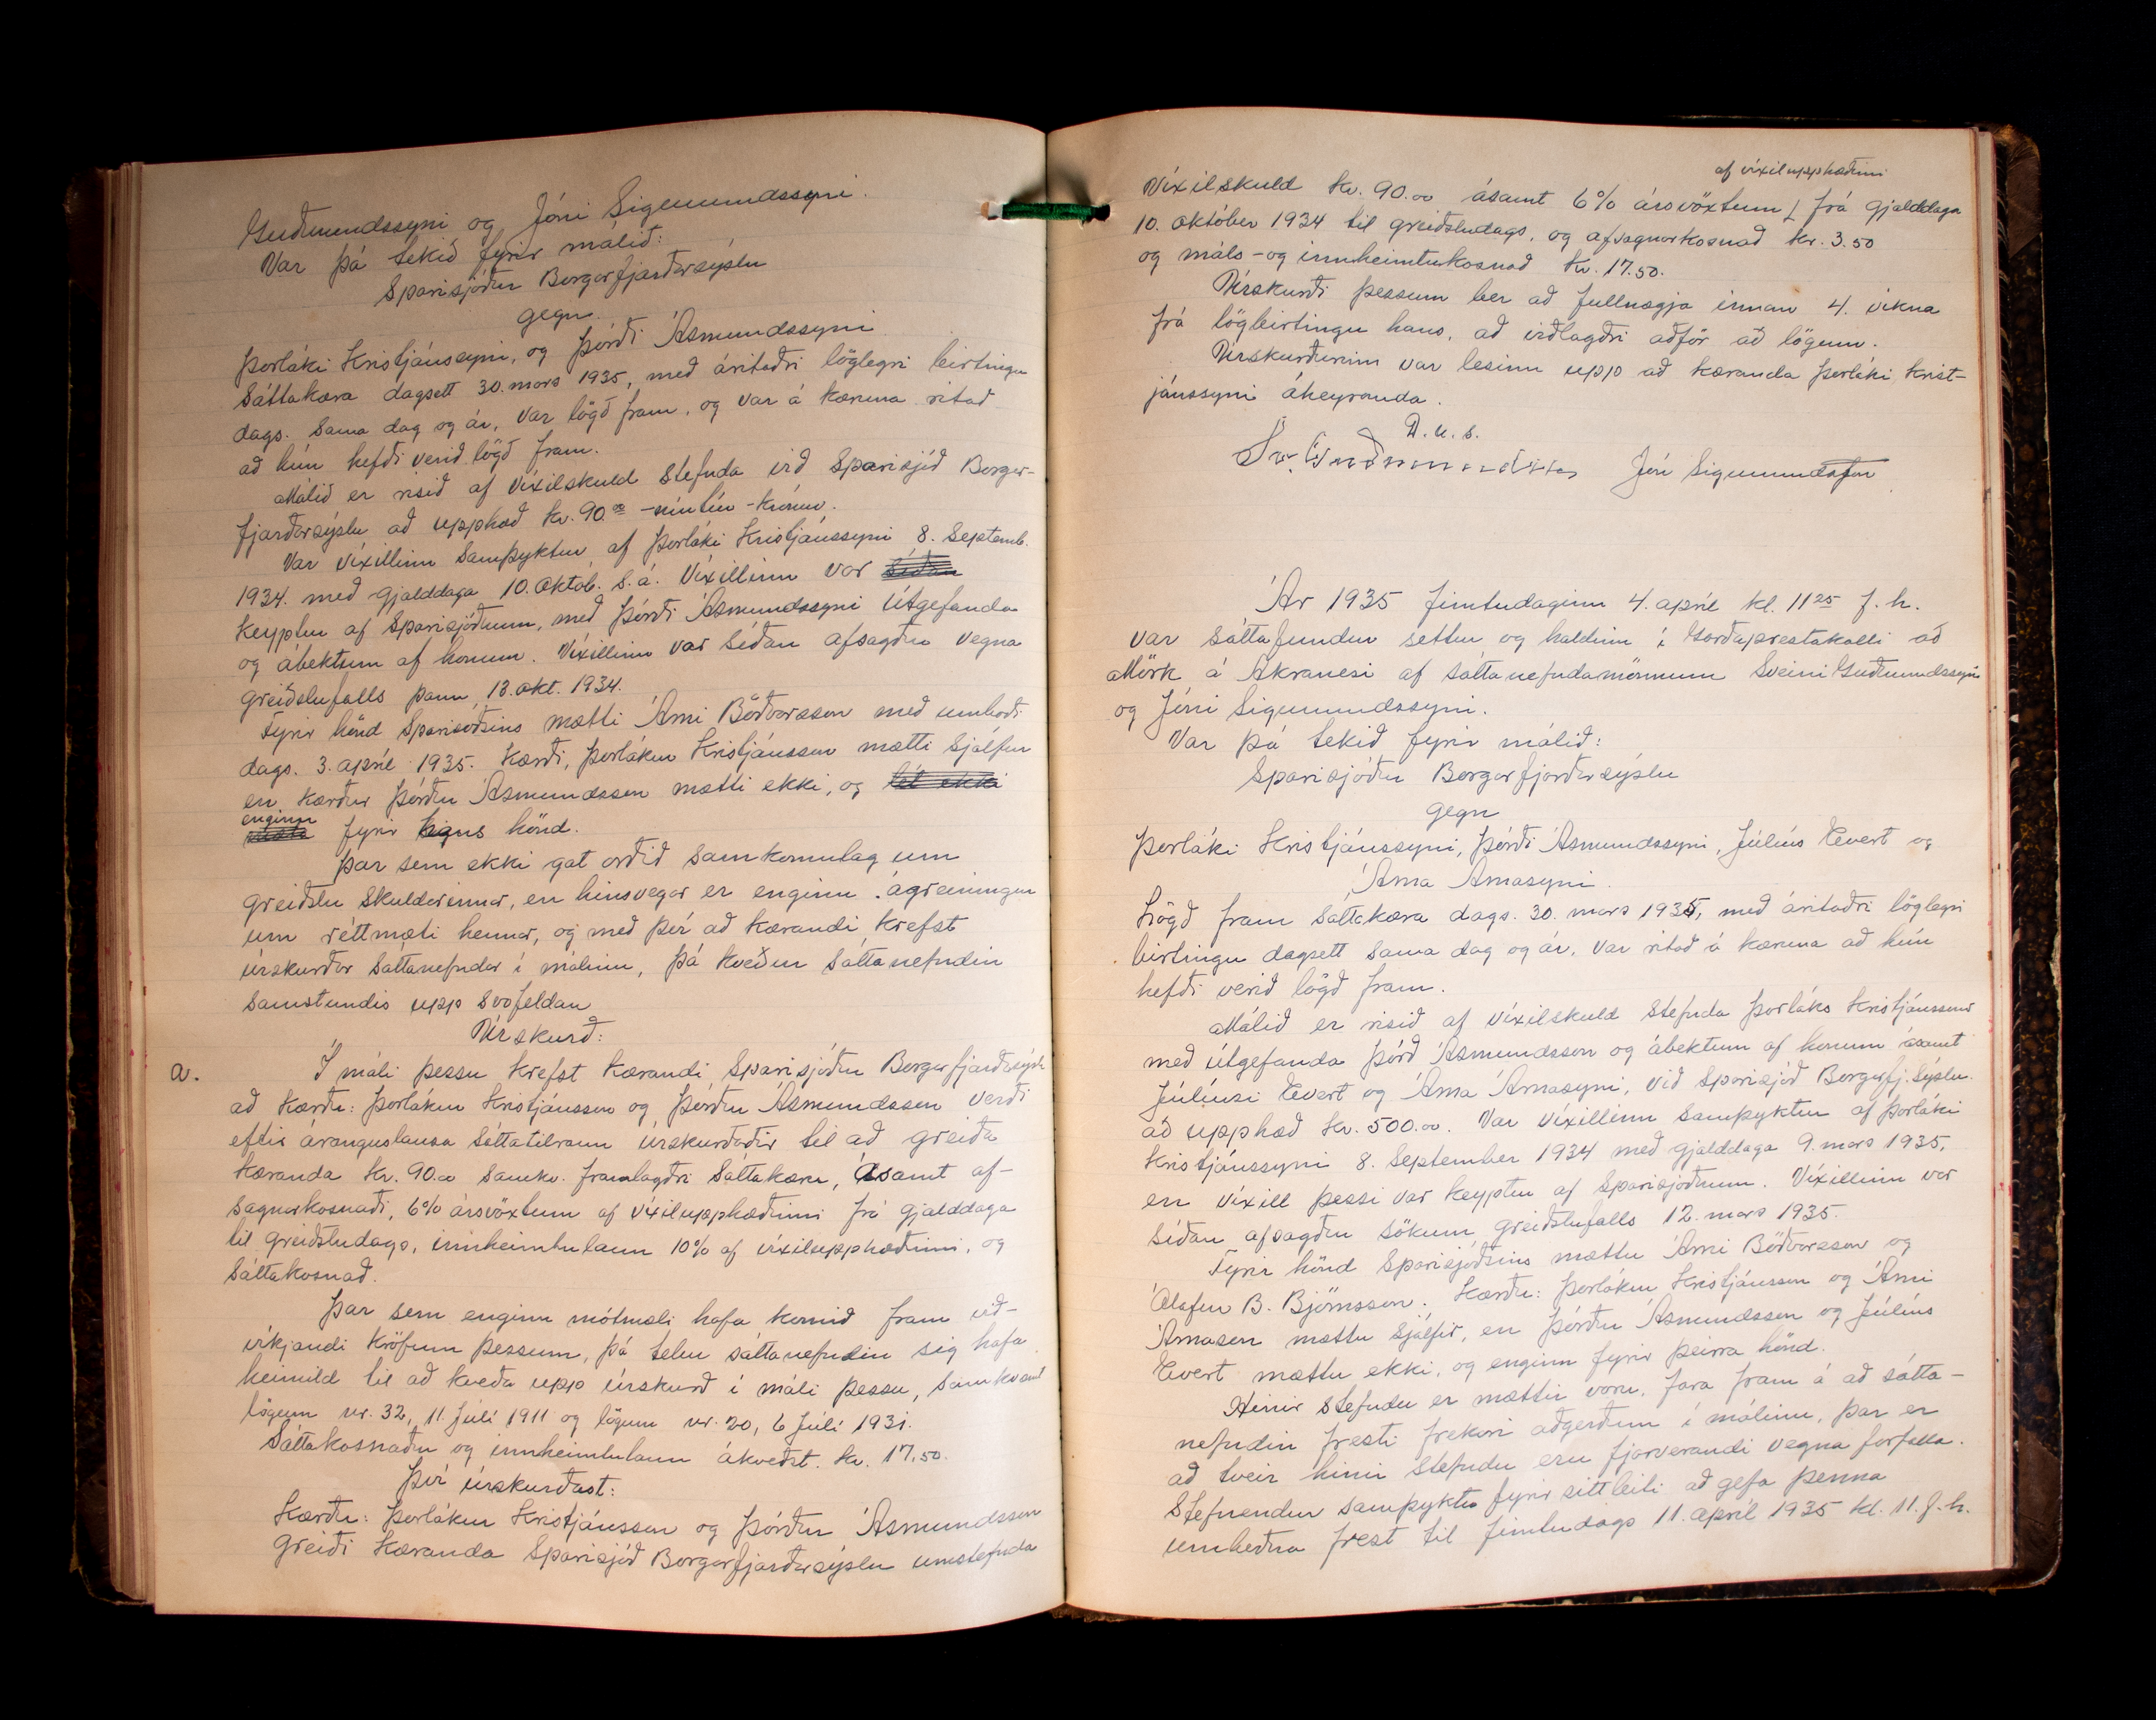 Guðmundssyni og Jóni Sigmundssyni.
Var þá tekið fyrir málið:
Sparisjóður Borgarfjarðarsýslu
gegn.
Þorláki Kristjánssyni, og Þórði Ásmundssyni
Sáttakæra dagsett 30. mars 1935, með áritaðri löglegri birtingu
dags. sama dag og ár, var lögð fram, og var á kæruna ritað
að hún hefði verið lögð fram.
Málið er risið af víxilskuld stefnda við Sparisjóð Borgar-
fjarðarsýslu að upphæð kr. 90.00 -níutíu-krónur.
Var víxillinn samþyktur af Þorláki Kristjánssyni 8. Septemb.
1934. með gjalddaga 10. Októb. s.á. Víxillinn var síðan
keyptur af Sparisjóðnum, með Þórði Ásmundssyni Útgefanda
og ábektum af honum. Víxillinn var síðan afsagður vegna
greiðslufalls þann 13. okt. 1934.
Fyrir hönd Sparisóðsins mætti Árni Böðvarsson með umboði
dags. 3. apríl 1935. Kærði, Þorlákur Kristjánsson mætti sjálfur
en kærður Þórður Ásmundsson mætti ekki, og lét ekki
enginn
mæta fyrir hans hönd.
Þar sem ekki gat orðið samkomulag um
greiðslu skuldarinnar, en hinsvegar er enginn ágreiningur
um réttmæti hennar, og með því að kærandi krefst
úrskurðar sáttanefndar í málinu, þá kveður sáttanefndin
samstundis upp svofeldan
Úrskurð:
a. Í máli þessu krefst kærandi Sparisjóður Borgarfjarðsýslu
að kærðu: Þorlákur Kristjánsson og Þórður Ásmundsson verði
eftir áranguslausa sáttatilraun úrskurðaðir til að greiða
kæranda kr. 90.00 samkv. framlagðri sáttakæru, ásamt af-
sagnarkosnaði, 6% ársvöxtum af víxilupphæðinni frá gjalddaga
til greiðsludags, innheimtulaun 10% af víxilupphæðinni, og
sáttakosnað.
Þar sem enginn mótmæli hafa komið fram við-
víkjandi kröfum þessum, þá telur sáttanefndin sig hafa
heimild til að kveða upp úrskurð í máli þessu, samkvæmt
lögum nr. 32, 11. Júlí 1911 og lögum nr. 20, 6 Júlí 1931.
Sáttakosnaður og innheimtulaun ákveðst. kr. 17.50.
Því úrskurðast:
Kærðu: Þorlákur Kristjánsson og Þórður Ásmundsson
greiði kæranda Sparisjóð Borgarfjarðarsýslu umstefnda
af víxilupphæðinni
Víxilskuld kr. 90.00 ásamt 6% ársvöxtum frá gjalddaga
10. október 1934 til greiðsludags, og afsagnarkosnað kr. 3.50
og máls-og innheimtukosnað kr. 17.50.
Úrskurði þessum ber að fullnægja innan 4. vikna
frá lögbirtingu hans, að viðlagðri aðför að lögum.
Úrskurðurinn var lesinn upp að kæranda Þorláki Krist-
jánssyni áheyranda.
D.u.s.
Sv. Guðmundsson Jón Sigmundsson
Ár 1935 fimtudaginn 4. apríl kl. 11 25 f.h.
var sáttafundur settur og haldinn í Garðaprestakalli að
Mörk á Akranesi af sáttanefndarmönnum Sveini Guðmundssyni
og Jóni Sigmundssyni.
Var þá tekið fyrir málið:
Sparisjóður Borgarfjarðarsýslu
gegn
Þorláki Kristjánssyni, Þórði Ásmundssyni, Júlíus Evert og
Árna Árnasyni.
Lögð fram sáttakæra dags. 30. mars 1935, með áritaðri löglegri
birtingu dagsett sama dag og ár, var ritað á kæruna að hún
hefði verið lögð fram.
Málið er risið af víxilskuld stefnda Þorláks Kristjánssonar
með útgefanda Þórð Ásmundsson og ábektum af honum ásamt
Júlíusi Evert og Árna Árnasyni, við Sparisjóð Borgarfj.sýslu.
að upphæð kr. 500.00. Var víxillinn samþyktur af Þorláki
Kristjánssyni 8. September 1934 með gjalddaga 9. mars 1935,
en víxill þessi var keyptur af Sparisjóðnum. Víxillinn var
síðan afsagður sökum greiðslufalls 12. mars 1935.
Fyrir hönd Sparisjóðsins mættu Árni Böðvarsson og
Ólafur B. Björnsson. Kærðu: Þorlákur Kristjánsson og Árni
Árnason mættu sjálfir, en Þórður Ásmundsson og Júlíus
Evert mættu ekki, og enginn fyrir þeirra hönd.
Hinir stefndu er mættir voru, fara fram á að sátta-
nefndin fresti frekari aðgerðum í málinu, þar er
að tveir hinir stefndu eru fjarverandi vegna forfalla.
Stefnendur samþyktu fyrir sitt leiti að gefa þenna
umbeðna frest til fimtudags 11. apríl 1935 kl. 11. f.h.